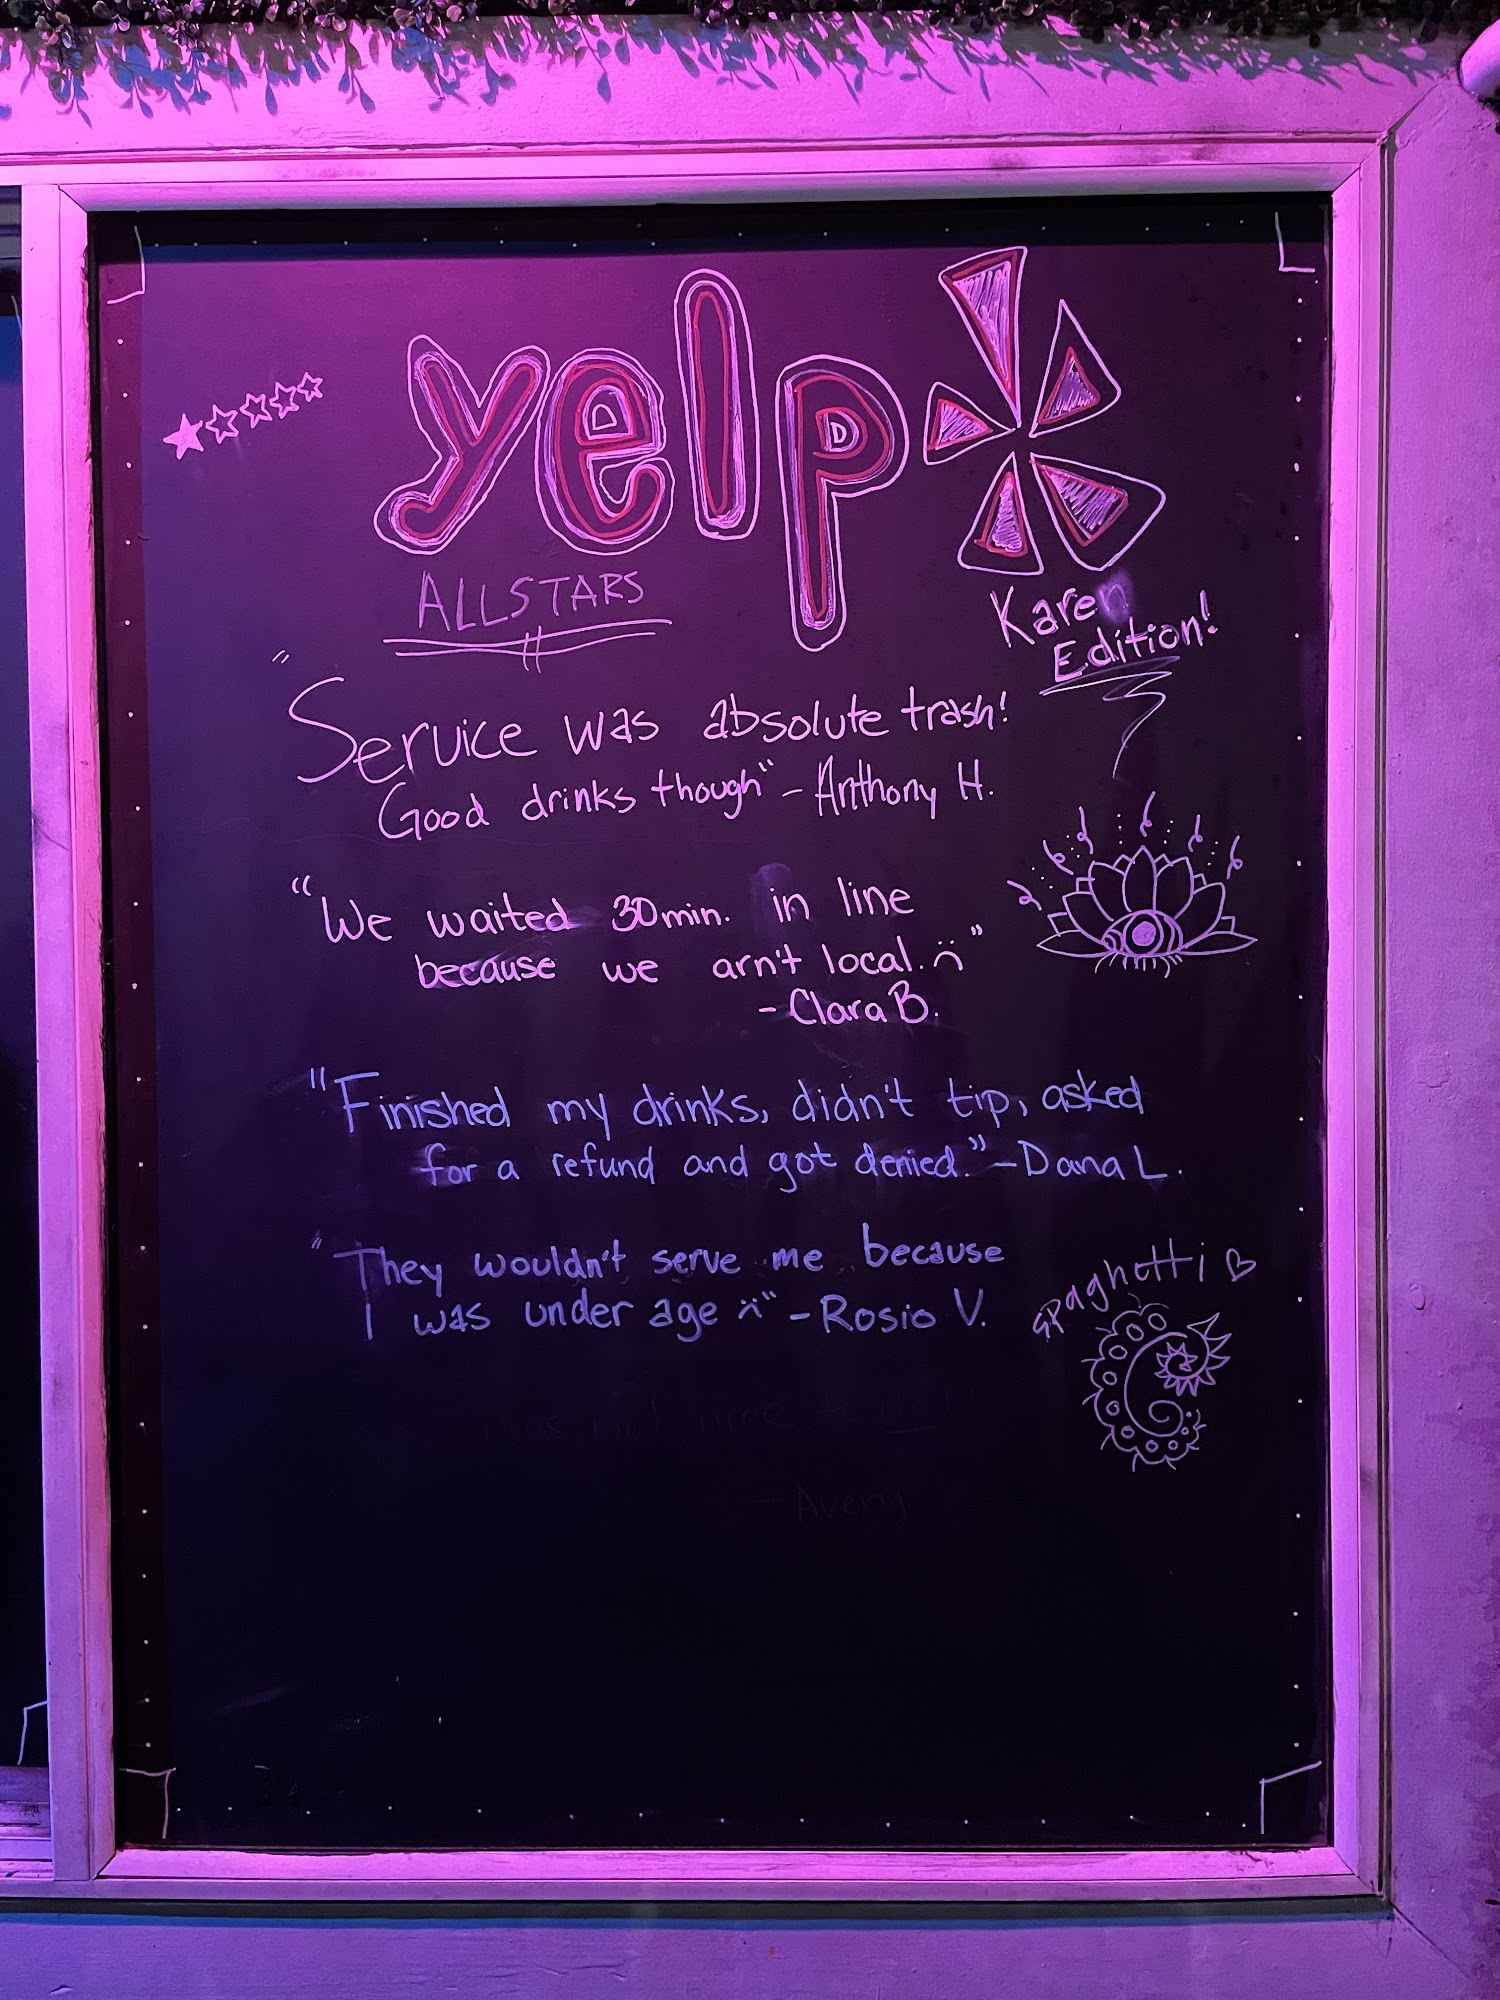 yelp
ALLSTARS
Karen
Edition!
"Service was absolute trash!
Good drinks though" - Anthony H.
"We waited 30min. in line
because we arn't local. :("
- Clara B.
"Finished my drinks, didn't tip, asked
for a refund and got denied." - Dana L.
"They wouldn't serve me because
I was under age :(" - Rosio V.
Spaghetti ♡
- Avery